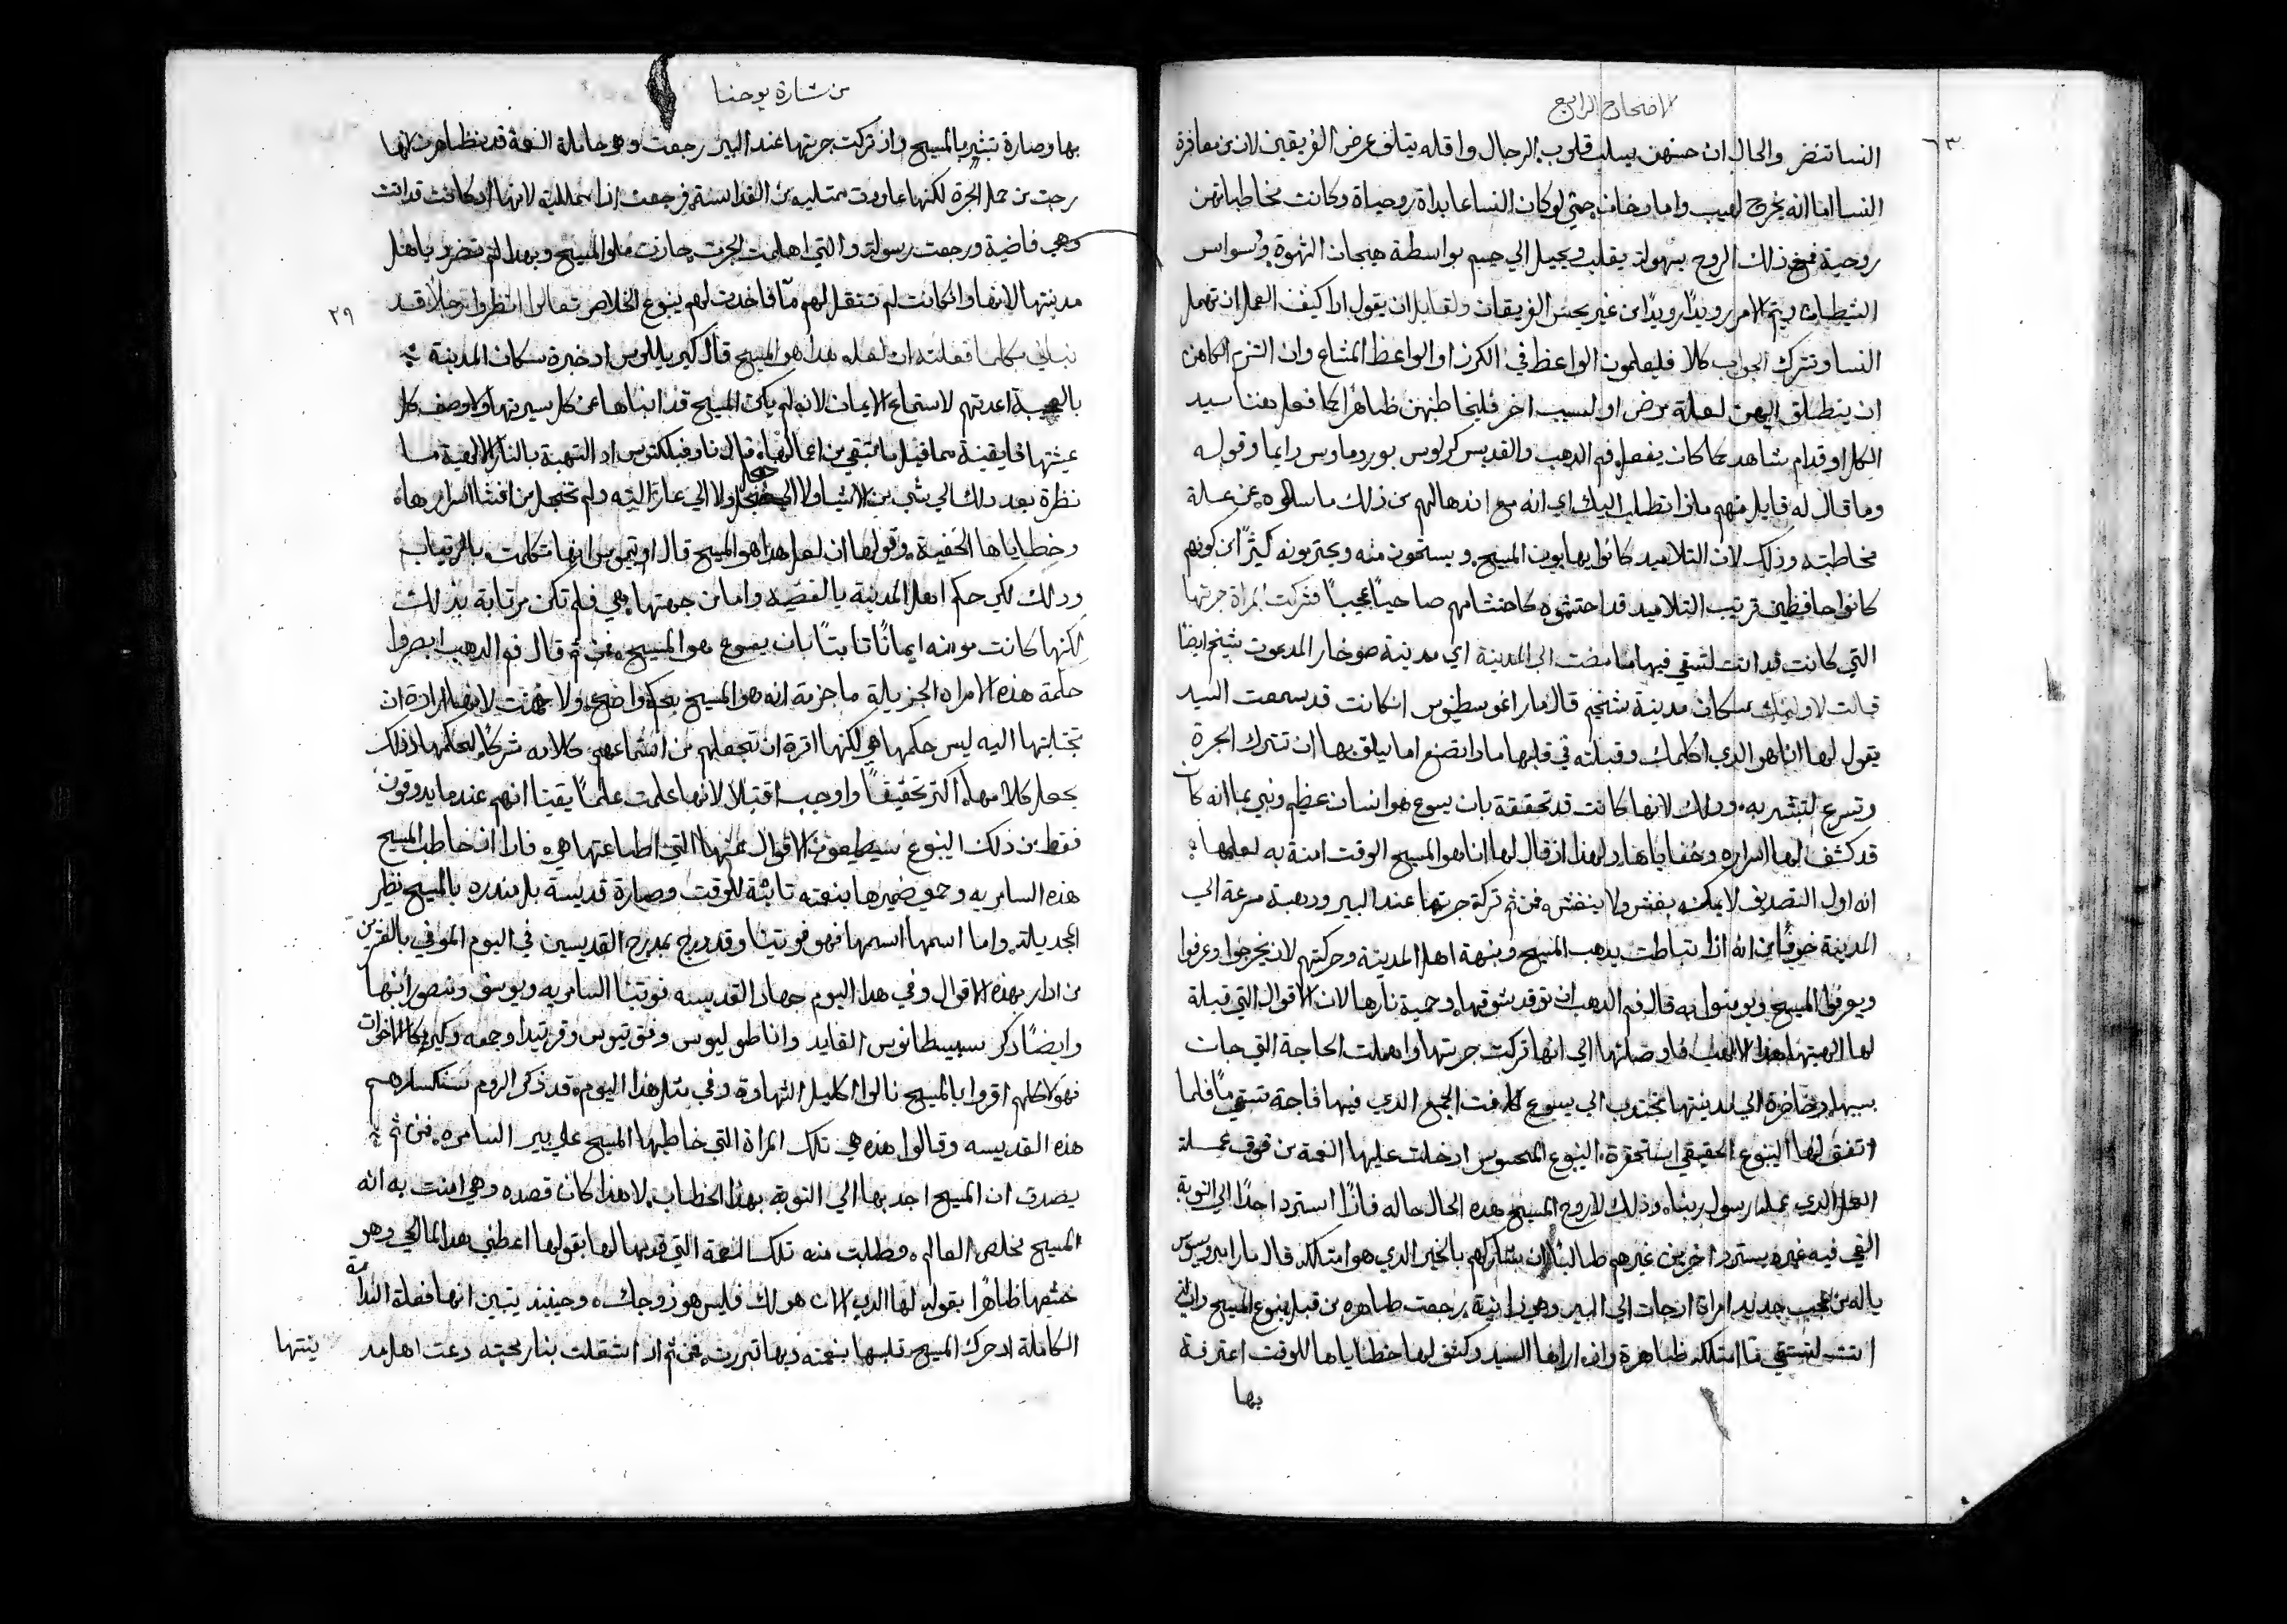 الاصحاح الرابع
٦٣
النسا تنضر والحال ان حسنهن يسلب قلوب الرجال واقله يتلف عرض الفريقين لان من معاشرة
النسا اما انه يخرج لهيب واما دخان حتي لو كان النسا عابداة روحياة وكانت مخاطباتهن
روحية فمع ذلك الروح بسهولة يقلب ويحيل الي جسم بواسطة هيجان الشهوة ووسواس
الشيطان ويتم الامر رويدًا رويدًا من غير يحس الفريقان ولقايل ان يقول اذا كيف العمل ان تهمل
النسا وتترك الجواب كلا فليعلمون الواعظ في الكرز او الواعظ المشاع وان التزم الكاهن
ان ينطلق اليهن لعلة مرض او لسبب اخر فليخاطبهن ظاهرًا كما فعل هنا سيد
الكل او قدام شاهد كما كان يفعل فم الدهب والقديس كرلوس بوروماوس دايما وقوله
وما قال له قايل منهم ماذا تطلب اليك اي انه مع اندهالهم من ذلك ما سالوه عن علة
مخاطبته وذلك لان التلاميد كانوا يهابون المسيح ويستحون منه ويحترمونه كثيرًا من كونهم
كانوا حافظين ترتيب التلاميد قد احتشموه كاحتشامهم صاحبًا عجيبًا فتركت المراة جرتها
التي كانت قد اتت لتسقي فيها ما مضت الي المدينة اي مدينة صوخار المدعوة شخيم ايضًا
قالت لاوليك سكان مدينة شخيم قال مار اغوسطينوس ان كانت قد سمعت السيد
يقول لها انا هو الدي اكلمك وقبلته في قلبها مادا تصنع اما يليق بها ان تترك الجرة
وتسرع لتبشر به وذلك لانها كانت قد تحققة بان يسوع هو انسان عظيم ونبي بما انه كان
قد كشف لها اسراره وخفاياها ولهذا اذ قال لها انا هو المسيح الوقت امنة به لعلمها
انه اول التصديق لا يمكنه يغش ولا ينغش فمن ثم تركة جرتها عند البير ودهبة مسرعة الي
المدينة خوفًا من انه اذا تباطت يدهب المسيح ونبهة اهل المدينة وحركتهم لان يخرجوا وعرفوا
ويعرفوا المسيح ويومنوا به قال فم الدهب ان توقد شوقها وحمية نارها لان الاقوال التي قيلة
لها الهبتها هذا الالهاب فاوصلتها الي انها تركت جرتها واهملت الحاجة التي جات
بسببها راضرة الي مدينتها تجتدب الي يسوع كافة الجمع الدي فيها فاجة تستقي مًا فلما
اتفق لها الينبوع الحقيقي استحقرة الينبوع المحسوس ادخلت عليها النعمة من فوق عملت
العمل الدي عمله رسول ربنا وذلك لان روح المسيح هده الحال حاله فاذًا استرد احدًا الي التوبة
القي فيه غيره يسترد اخرين غيرهم طالبًا ان يشاركهم بالخير الدي هو امتلكه قال مار امبروسيوس
يا له من عجب جديد امراة اذ جات الي البير وهي زانية رجعت طاهره من قبل ينبوع المسيح والتي
اتت لتستقي مًا امتلكه طاهرة واذ اراها السيد وكشف لها خطاياها للوقت اعترفة
بها
من بشارة يوحنا
بها وصارة تبشر بالمسيح واذ تركت جرتها عند البير رجعت وهي حاملة النعمة قد يظاهر انها
رجعت من حمل الجرة لكنها عاودت ممتليه من القداسة فرجعت اذا ممتليه لانها اذ كانت قد اتت
وهي فاضية ورجعت رسولة والتي اهملت الجرة حازت ملو المسيح وبهدا لم تضر باهل
مدينتها لانها وان كانت لم تنقل لهم مآ فاخدت لهم ينبوع الخلاص تعالوا انظروا رجلًا قد
٢٩
نباني بكلما فعلته ان لعله هدا هو المسيح قال كيرلليوس اذ خبرة سكان المدينة
بالعجيبة اعدتهم لاستماع الايمان لانه لم يكن المسيح قد انباها عن كل سيرتها ولا وصف كل
عيشتها فايقينة مما قيل ما تبقي من اعمالها قال ثاوفيلكتوس اذ التهبة بالنار الالهية ما
نظرة بعد دلك الي شي من الاشيا ولا الي خجل ولا الي عار البته ولم تخجل من افشا اسرارها
وخطاياها الخفية وقولها ان لعل هدا هو المسيح قال اوتيموس انها تكلمت بالارتياب
ودلك لكي حكم اهل المدينة بالقضيه واما من جهتها هي فلم تكن مرتابة بذلك
لكنها كانت مومنه ايمانًا ثابتًا بان يسوع هو المسيح فمن ثم قال فم الدهب ابصروا
حكمة هذه الامراه الجزيلة ما جزمة انه هو المسيح بحكم واضح ولا صمتت لانها ارادة ان
تجتلبتها اليه ليس حكمها هي لكنها اثرة ان تجعلهم من استماعهم كلامه شركا لحكمها ذلك
يجعل كلامها اكثر تحقيقًا واوجب اقتبالًا لانها علمت علمًا يقينًا انهم عندما يدوقون
فقط من ذلك الينبوع سيطيعون الاقوال عينها التي اطاعتها هي فاذا ان خاطب المسيح
هذه السامريه وحمي ضميرها بنعمته تابثة للوقت وصارة قديسة بل مندره بالمسيح نظير
المجدلية واما اسمها اسمها فهو فوتينا وقد درج بمدرج القديسين في اليوم الموفي بالعشرين
من ادار بهذه الاقوال وفي هذا اليوم جهاد القديسه فوتينا السامريه ويوسف وفيتور ابنيها
وايضًا ذكر سيسطانوس القايد واناطوليوس وفوتيوس وفوتيدا وجمعه وكيرياكا الاخوات
فهولا كلهم اقروا بالمسيح نالوا اكليل الشهادة وفي مثل هذا اليوم قد ذكر الروم سنكسارهم
هذه القديسه وقالوا هذه هي تلك المراة التي خاطبها المسيح علي بير السامره فمن ثم
يصدق ان المسيح اجدبها الي التوبة بهذا الخطاب لان هذا كان قصده وهي امنت به انه
المسيح مخلص العالم وطلبت منه تلك النعمة التي قدمها لها بقولها اعطني هدا الما الحي وهو
خثمها ظاهرًا بقوله لها الدي الان هو لك فليس هو زوجك وحينيد يتبين انها فعلة الندامة
الكاملة اد حرك المسيح قلبها بنعمته وبها تبررت فمن ثم اذ اشتعلت بنار محبته دعت اهل مد
ينتها